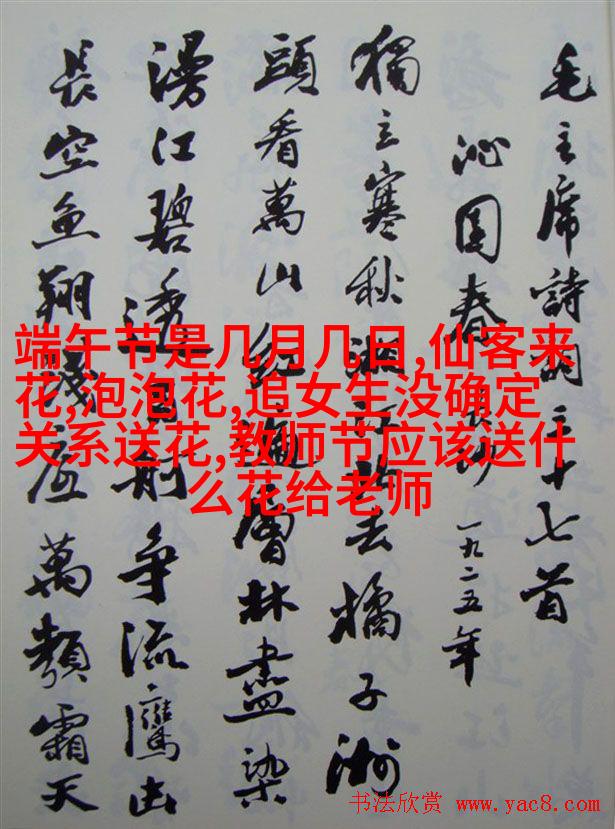 毛主席詩詞三十七首
沁园春 長沙 一九二五年
獨立寒秋湘江北去橘子洲
頭看萬山红遍層林盡染
漫江碧透百舸争流鷹击
長空魚翔浅底萬類霜天
端午节是几月几日,仙客来
花,泡泡花,追女生没确定
关系送花,教师节应该送什
么花给老师
书法欣赏 www.yac8.com